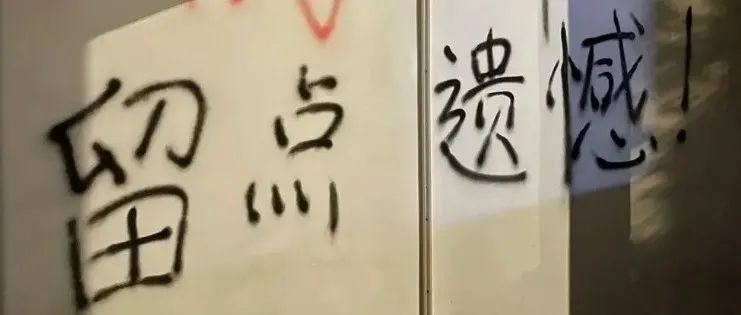 留点遗憾!